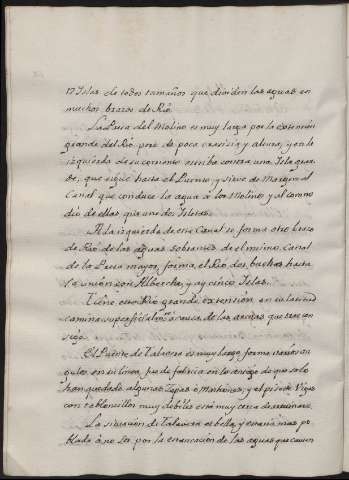 17 Islas de todos tamaños que dividen las aguas en
muchos brazos de Rio.
La Presa del Molino es muy larga por la extension
grande del Rio, pero de poca crasicia y altura, y en la
izquierda de su corriente estriba contra una Isla gran
de, que sigue hasta el Puente, y sirve de Margen al
Canal que conduce la agua à los Molinos, y al como
dio de ellas que unas Isletas.
A la izquierda de este Canal se forma otro brazo
de Rio de las aguas sobrantes del mismo Canal
de la Presa mayor, forma el Rio dos buchas hasta
la union con Alberche, y ay cinco Islas.
Tiene este Rio grande extension, en su latitud
camina superficialmte à causa de las arenas que trae con
sigo.
El Puente de Talavera es muy largo forma varios an
gulos en su linea, fue de fabrica en lo antiguo de que solo
han quedado algunas Zepas o Machones, y el piso de Vigas
con tablonzillos muy debiles está muy cerca de arruinarse.
La situacion de Talavera es bella, y estaria mas po
blada à no ser por la estancacion de las aguas que causan